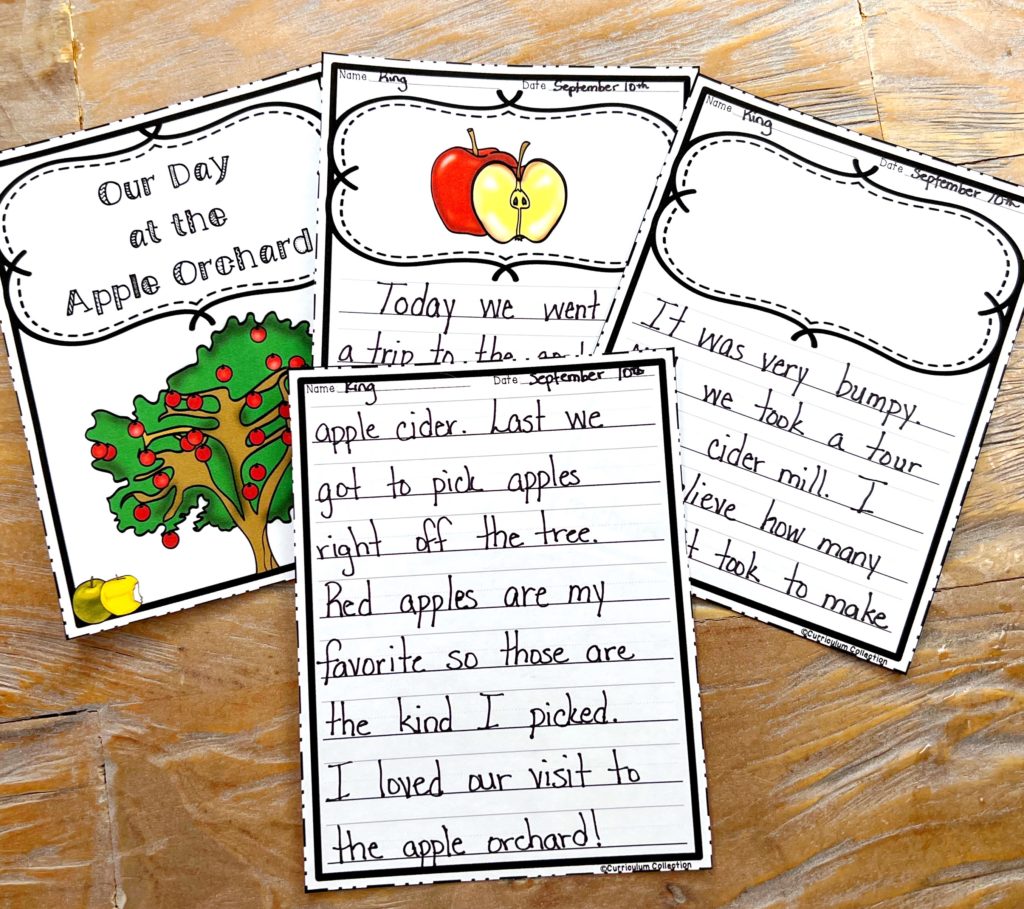 Our Day
at the
Apple Orchard
Name King Date September 10th
Today we went
a trip to the
Name King Date September 10th
It was very bumpy.
we took a tour
cider mill. I
how many
took to make
©Curriculum Collection
Name King Date September 10th
apple cider. Last we
got to pick apples
right off the tree.
Red apples are my
favorite so those are
the kind I picked.
I loved our visit to
the apple orchard!
©Curriculum Collection